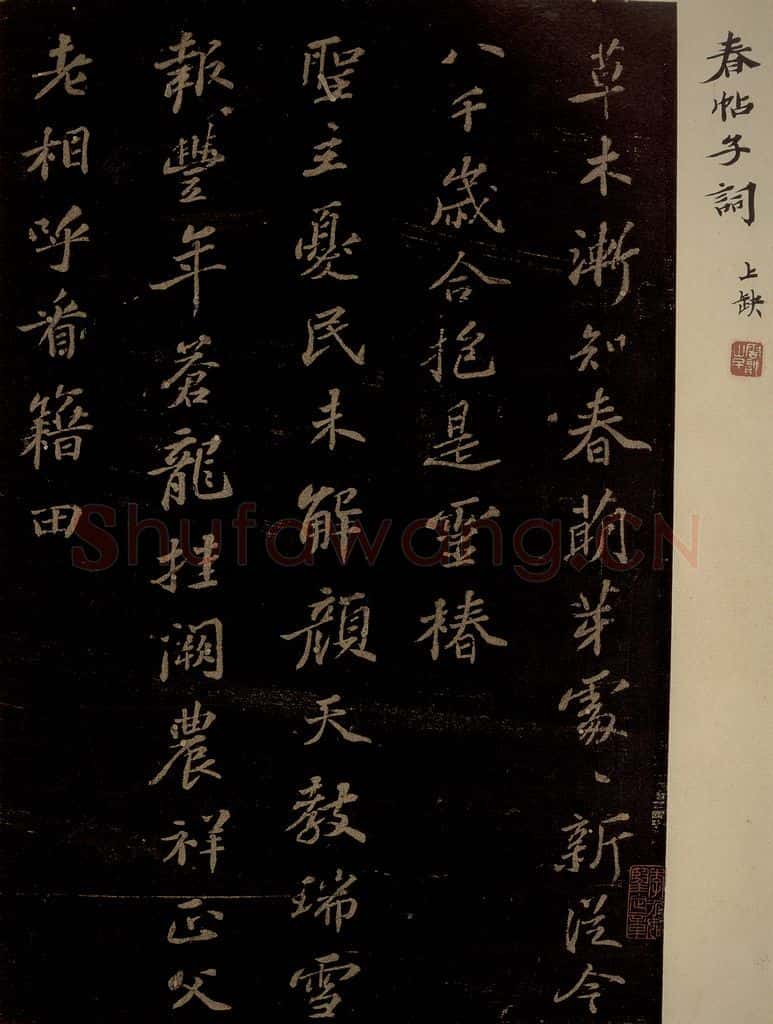 春帖子詞 上缺
草木漸知春萌芽處〻新從今
八千歲合抱是靈椿
聖主憂民未解顏天教瑞雪
報豐年蒼龍挂闕農祥正父
老相呼看籍田
Shufawang.CN